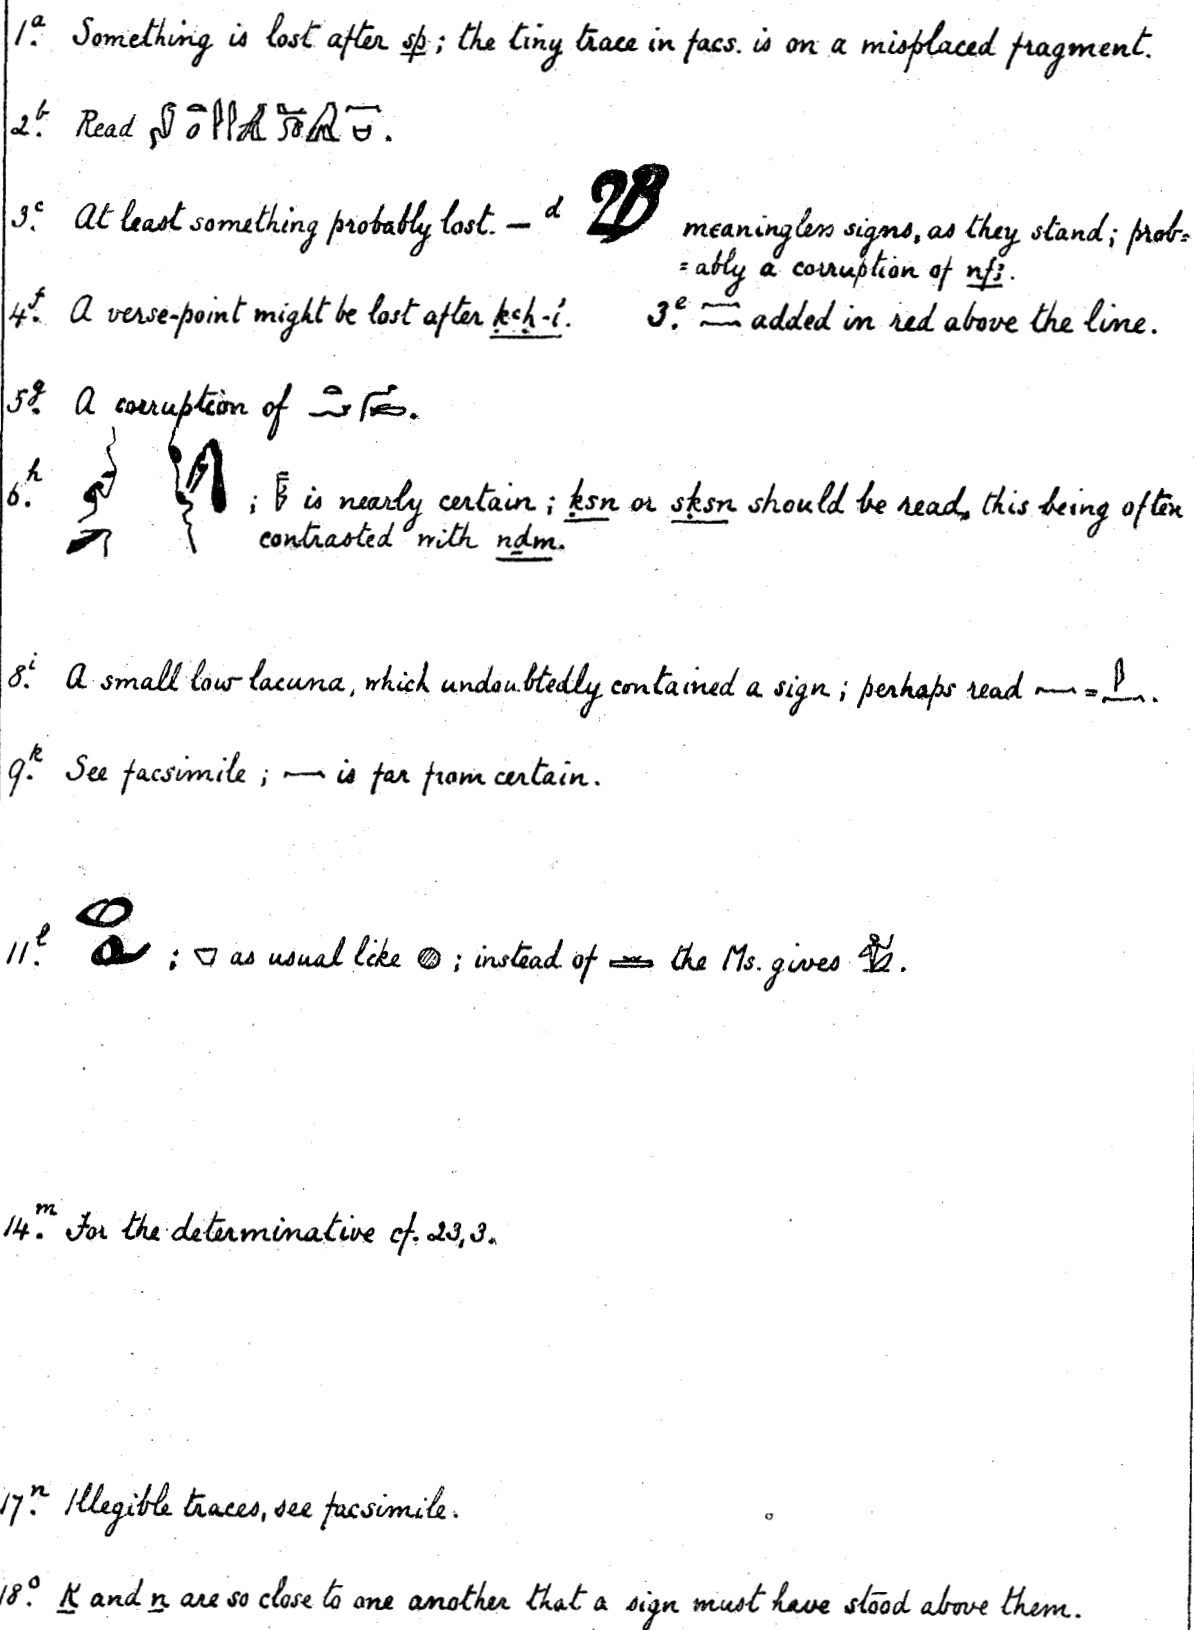 1.ᵃ Something is lost after sp; the tiny trace in facs. is on a misplaced fragment.
2.ᵇ Read .
3.ᶜ At least something probably lost. — ᵈ meaningless signs, as they stand; prob=
=ably a corruption of nfꜣ.
4.ᶠ A verse-point might be lost after ḳꜥḥ-i. 3.ᵉ added in red above the line.
5.ᵍ A corruption of .
6.ʰ ; is nearly certain; ḳsn or sḳsn should be read, this being often
contrasted with nḏm.
8.ⁱ A small low lacuna, which undoubtedly contained a sign; perhaps read = .
9.ᵏ See facsimile; is far from certain.
11.ˡ ; as usual like ; instead of the Ms. gives .
14.ᵐ For the determinative cf. 23,3.
17.ⁿ Illegible traces, see facsimile.
18.ᵒ K and n are so close to one another that a sign must have stood above them.